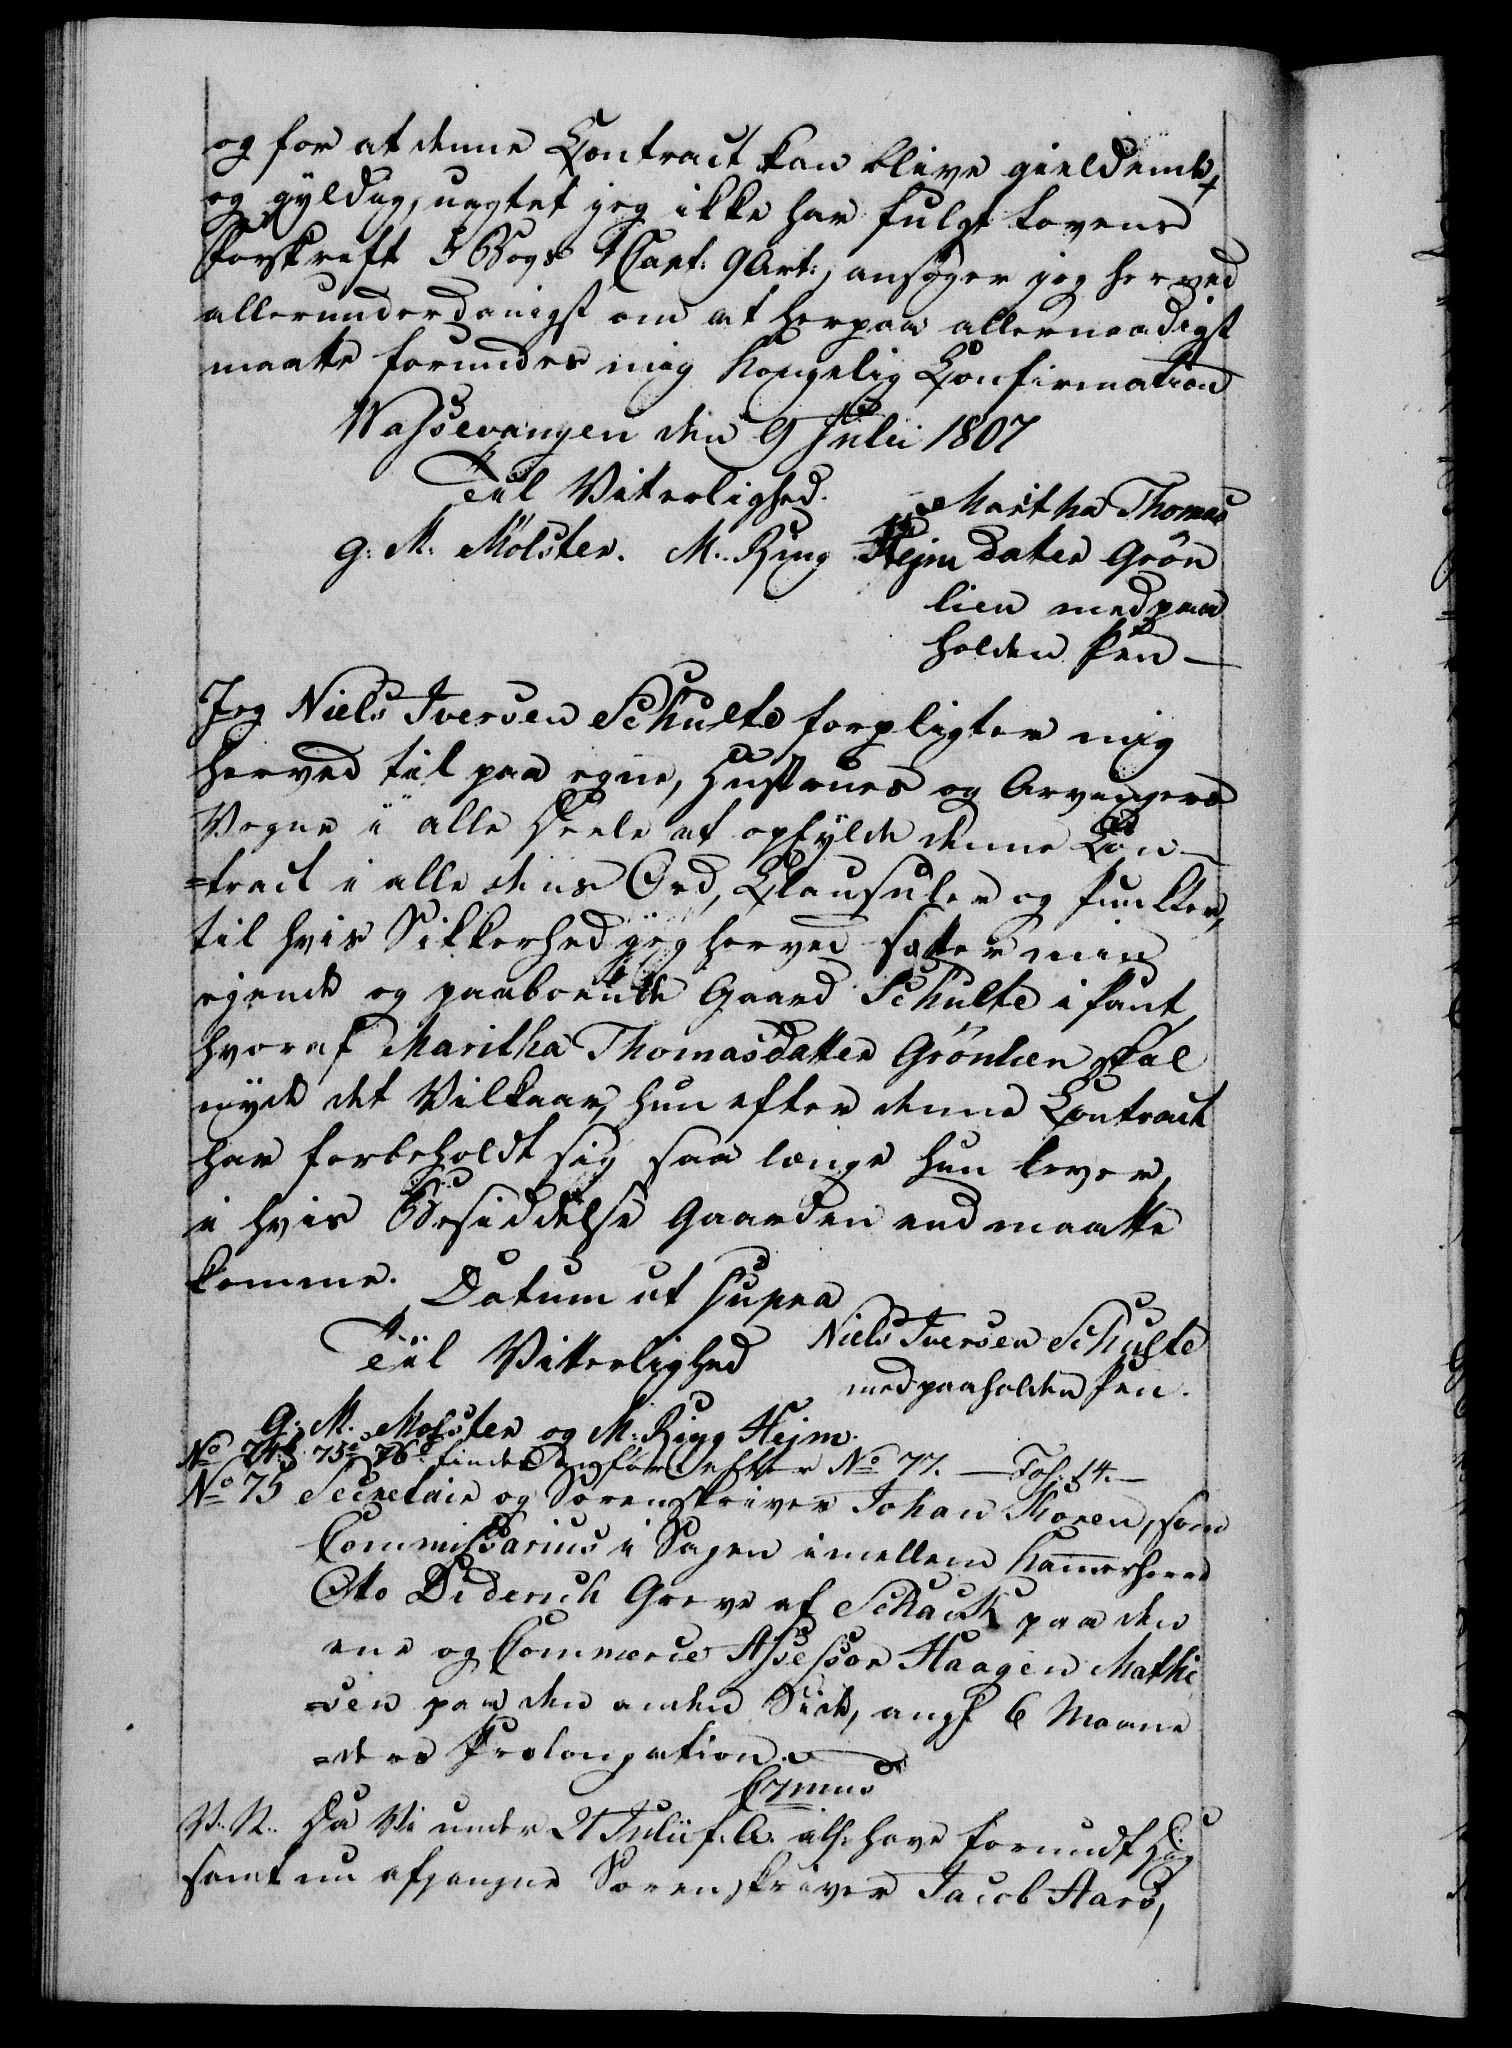 og for at denne Contract kan blive gieldende
og gyldig, uagtet jeg ikke har fulgt Lovens
Forskrift 5 Bogs 4 Capt: 9 Art:, ansøger jeg herved
allerunderdanigst om at herpaa allernaadigst
maatte forundes mig Kongelig Confirmation
Wassevangen den 9 Julii 1807
Til Vitterlighed. Maritha Thomas
G: M: Molster. M. Ring Hejm datter Grøn
lien med paa
holden Pen —
Jeg Niels Iversen Schulte forpligter mig
herved til paa egne, Hustrues og Arvingers
Vegne i alle Deele at opfylde denne Con-
=tract i alle dens Ord, Clausuler og Puncter,
til hvis Sikkerhed jeg herved sætter min
ejende og paaboende Gaard Schulte i Pant,
hvoraf Maritha Thomasdatter Grønlien skal
nyde det Vilkaar, hun efter denne Contract
har forbeholdt sig saa længe hun lever,
i hvis Besiddelse Gaarden end maatte
komme. Datum ut supra
Til Vitterlighed Niels Iversen Schulte
med paaholden Pen.
G: M. Molster og M: Ring Hejm.
No 74 75 76 findes indført efter No 77. — Fol: 14. —
No 75 Secretair og Sorenskriver Johan Koren, som
Commissarius i Sagen imellem Kammerherre
Otto Diderich Greve af Schack paa den
ene og Commerce Assessor Haagen Mathi
=sen paa den anden Side, angl 6 Maane
=ders Prolongation.
V: R: Da Vi under 2 Julii f. A. alt have forundt Dig
samt nu afgangne Sorenskriver Jacob Aars,